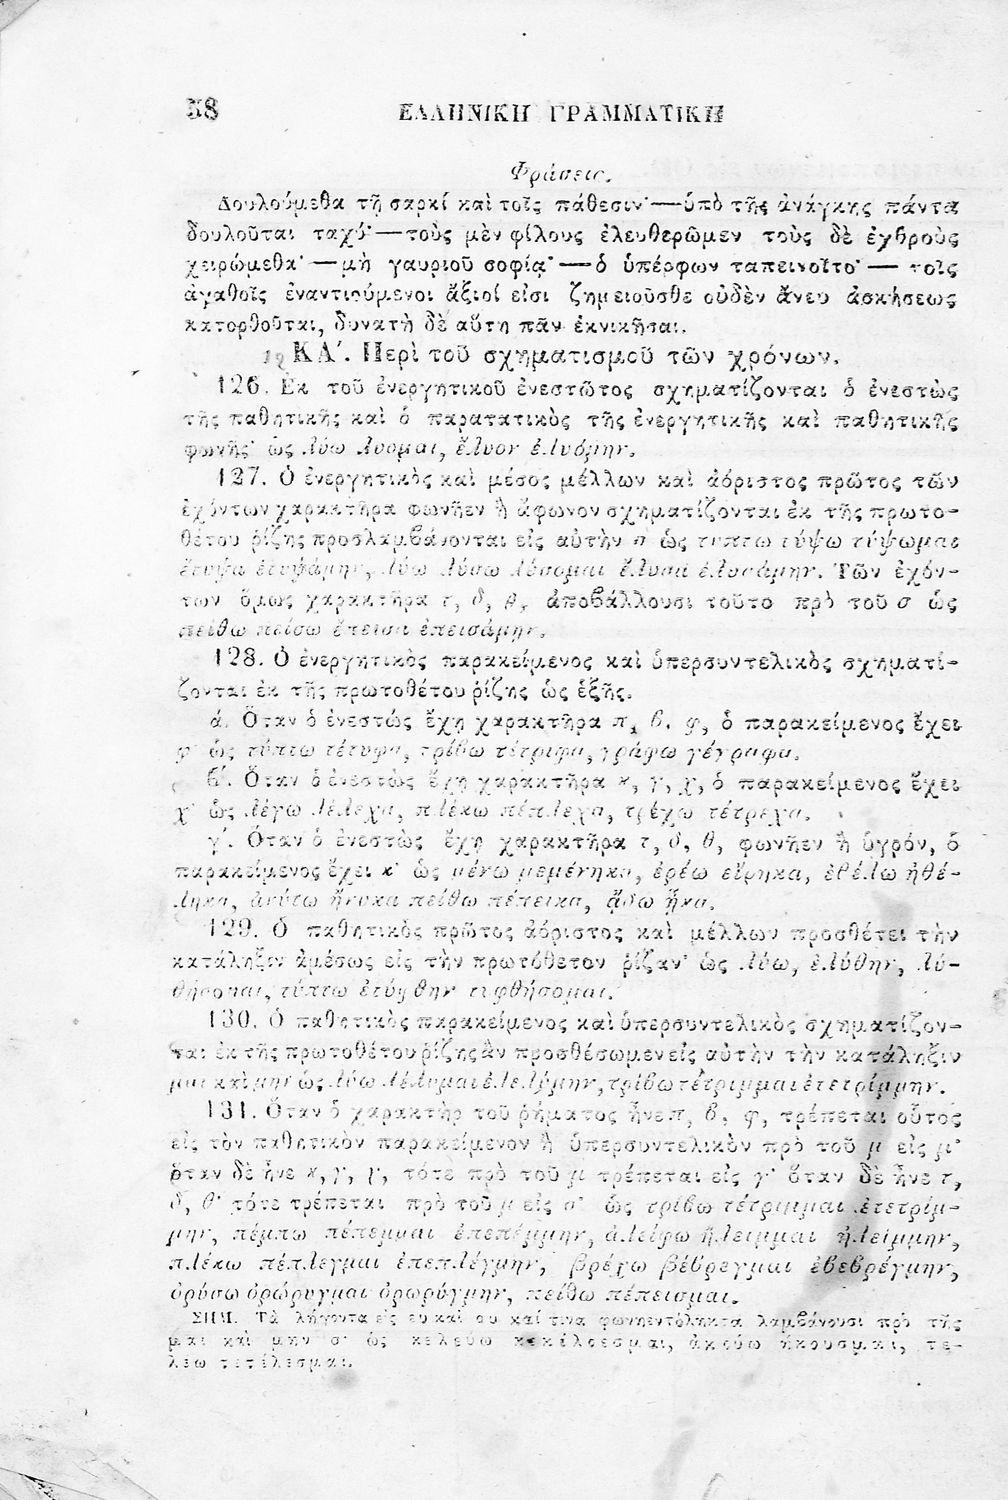 58 ΕΛΛΗΝΙΚΗ ΓΡΑΜΜΑΤΙΚΗ
Φράσεις.
Δουλούμεθα τῇ σαρκί καὶ τοῖς πάθεσιν·—ὑπὸ τῆς ἀνάγκης πάντα
δουλοῦται ταχύ·—τοὺς μὲν φίλους ἐλευθερῶμεν τοὺς δὲ ἐχθροὺς
χειρώμεθα·—μὴ γαυριοῦ σοφίᾳ·—ὁ ὑπέρφων ταπεινοῖτο·— τοῖς
ἀγαθοῖς ἐναντιούμενοι ἄξιοί εἰσι ζημειοῦσθε οὐδὲν ἄνευ ἀσκήσεως
κατορθοῦται, δυνατὴ δὲ αὕτη πᾶν ἐκνικῆσαι.
ΚΑʹ. Περὶ τοῦ σχηματισμοῦ τῶν χρόνων.
126. Ἐκ τοῦ ἐνεργητικοῦ ἐνεστῶτος σχηματίζονται ὁ ἐνεστὼς
τῆς παθητικῆς καὶ ὁ παρατατικὸς τῆς ἐνεργητικῆς καὶ παθητικῆς
φωνῆς· ὡς λύω λυομαι, ἔλυον ἐλυόμην.
127. Ὁ ἐνεργητικὸς καὶ μέσος μέλλων καὶ ἀόριστος πρῶτος τῶν
ἐχόντων χαρακτῆρα φωνῆεν ἢ ἄφωνον σχηματίζονται ἐκ τῆς πρωτο-
θέτου ῥίζης προσλαμβάνονται εἰς αὐτὴν σ ὡς τυπτω τύψω τύψωμαι
ἔτυψα ἐτυψάμην, λύω λύσω λύσομαι ἔλυσα ἐλυσάμην. Τῶν ἐχόν-
των ὅμως χαρακτῆρα τ, δ, θ, ἀποβάλλουσι τοῦτο πρὸ τοῦ σ ὡς
πείθω πείσω ἔπεισα ἐπεισάμην.
128. Ὁ ἐνεργητικὸς παρακείμενος καὶ ὑπερσυντελικὸς σχηματί-
ζονται ἐκ τῆς πρωτοθέτου ῥίζης ὡς ἑξῆς.
ά. Ὅταν ὁ ἐνεστώς ἔχῃ χαρακτῆρα π, β, φ, ὁ παρακείμενος ἔχει
φ· ὡς τύπτω τέτυφα, τρίβω τέτριφα, γράφω γέγραφα.
β΄. Ὅταν ὁ ἐνεστὼς ἔχῃ χαρακτῆρα κ, γ, χ, ὁ παρακείμενος ἔχει
χ· ὡς λέγω λέλεχα, πλέκω πέπλεχα, τρέχω τέτρεχα.
γ΄. Ὅταν ὁ ἐνεστὼς ἔχῃ χαρακτῆρα τ, δ, θ, φωνῆεν ἢ ὑγρόν, ὁ
παρακείμενος ἔχει κ· ὡς μένω μεμένηκα, ἐρέω εἴρηκα, ἐθέλω ἠθέ-
ληκα, ἀνύτω ἤνυκα πείθω πέπεικα, ᾄδω ᾖκα.
129. Ὁ παθητικὸς πρῶτος ἀόριστος καὶ μέλλων προσθέτει τὴν
κατάληξιν ἀμέσως εἰς τὴν πρωτόθετον ῥίζαν· ὡς λύω, ἐλύθην, λυ-
θήσομαι, τύπτω ἐτύφθην τυφθήσομαι.
130. Ὁ παθητικὸς παρακείμενος καὶ ὑπερσυντελικὸς σχηματίζον-
ται ἐκ τῆς πρωτοθέτου ῥίζης ἂν προσθέσωμεν εἰς αὐτὴν τὴν κατάληξιν
μαι καὶ μην ὡς λύω λέλυμαι ἐλελύμην, τρίβω τέτριμμαι ἐτετρίμμην.
131. Ὅταν ὁ χαρακτὴρ τοῦ ῥήματος ἦνε π, β, φ, τρέπεται οὗτος
εἰς τὸν παθητικὸν παρακείμενον ἢ ὑπερσυντελικὸν πρὸ τοῦ μ εἰς μ·
ὅταν δὲ ἦνε κ, γ, χ, τότε πρὸ τοῦ μ τρέπεται εἰς γ· ὅταν δὲ ἦνε τ,
δ, θ· τότε τρέπεται πρὸ τοῦ μ εἰς σ· ὡς τρίβω τέτριμμαι ἐτετρίμ-
μην, πέμπω πέπεμμαι ἐπεπέμμην, ἀλείφω ἤλειμμαι ἠλείμμην,
πλέκω πέπλεγμαι ἐπεπλέγμην, βρέχω βέβρεγμαι ἐβεβρέγμην,
ὀρύσω ὀρώρυγμαι ὀρωρύγμην, πείθω πέπεισμαι.
ΣΗΜ. Τὰ λήγοντα εἰς ευ καὶ ου καί τινα φωνηεντόληκτα λαμβάνουσι πρὸ τῆς
μαι καὶ μην σ· ὡς κελεύω κεκέλσεσμαι, ἀκούω ἤκουσμαι, τε-
λέω τετέλεσμαι.